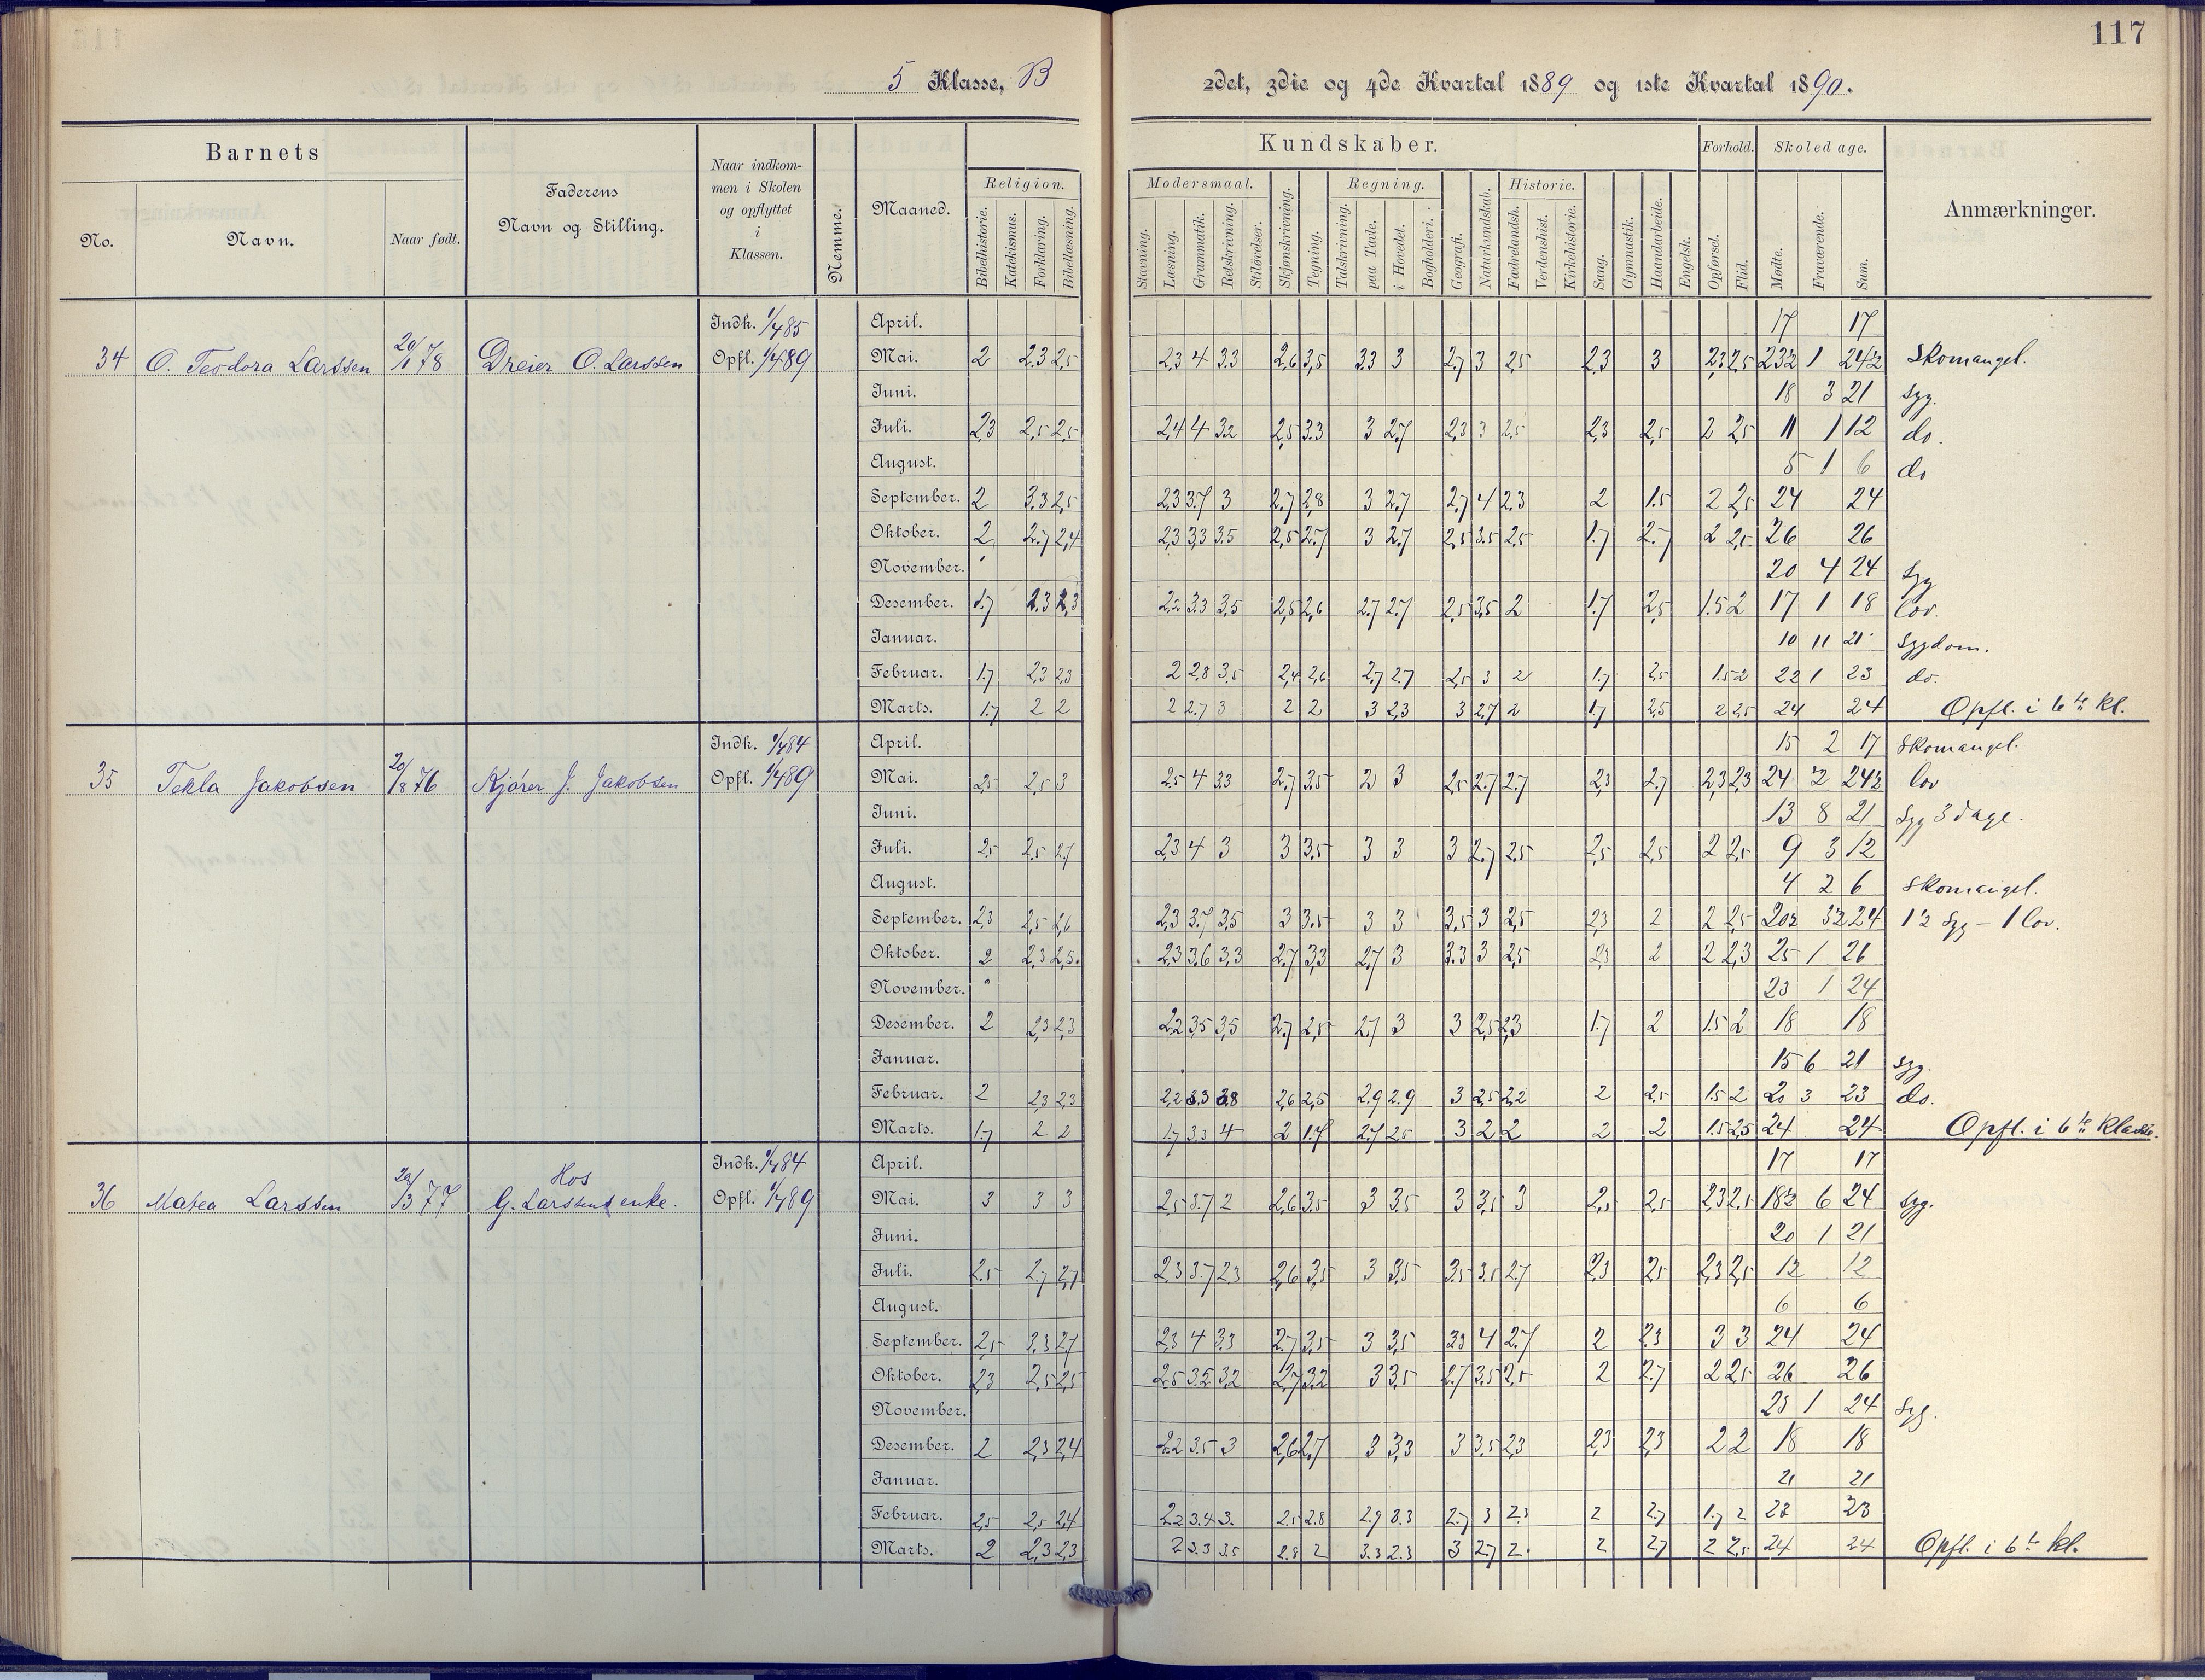 117
5 Klasse, B
2det, 3die og 4de Kvartal 1889 og 1ste Kvartal 1890.
Barnets
No.
Navn.
Naar født.
Faderens
Navn og Stilling.
Naar indkom-
men i Skolen
og opflyttet
i
Klassen.
Nemme.
Maaned.
Kundskaber.
Religion.
Bibelhistorie.
Katekismus.
Forklaring.
Bibellæsning.
Modersmaal.
Stavning.
Læsning.
Grammatik.
Retskrivning.
Stiløvelser.
Skjønskrivning.
Tegning.
Regning.
Talskrivning.
paa Tavle.
i Hovedet.
Bogholderi.
Geografi.
Naturkundskab.
Historie.
Fædrelandsh.
Verdenshist.
Kirkehistorie.
Sang.
Gymnastik.
Haandarbeide.
Engelsk.
Forhold.
Opførsel.
Flid.
Skoledage.
Mødte.
Fraværende.
Sum.
Anmærkninger.
34 O. Teodora Larssen 20/1 78 Dreier O. Larssen
Indk. 1/4 85
Opfl. 1/4 89
April. 17 17
Mai. 2 2,3 2,5 2,3 4 3.3 2,6 3,5 3.3 3 2,7 3 2,5 2,3 3 2,3 2,5 23½ 1 24½ Skomangel.
Juni. 18 3 21 Syg.
Juli. 2,3 2,5 2,5 2,4 4 3.2 2,5 3.3 3 2,7 2,3 3 2,5 2,3 2,5 2 2,5 11 1 12 do.
August. 5 1 6 do
September. 2 3,3 2,5 2,3 3.7 3 2,7 2,8 3 2,7 2,7 4 2,3 2 1.5 2 2,5 24 24
Oktober. 2 2,7 2,4 2,3 3,3 3.5 2,5 2,7 3 2,7 2,5 3.5 2,5 1.7 2,7 2 2,5 26 26
November. 20 4 24 Syg
Desember. 1.7 2,3 2,3 2,2 3.3 3,5 2,5 2,6 2,7 2,7 2,5 3,5 2 1.7 2,5 1.5 2 17 1 18 lov.
Januar. 10 11 21 Sygdom.
Februar. 1.7 2,3 2,3 2 2,8 3,5 2,4 2,6 2,7 2,7 2,5 3 2 1.7 2,5 1.5 2 22 1 23 do.
Marts. 1.7 2 2 2 2.7 3 2 2 3 2,3 3 2,7 2 1.7 2,5 2 2,5 24 24 Opfl. i 6te kl.
35 Tekla Jakobsen 20/8 76 Kjører J. Jakobsen
Indk. 1/4 84
Opfl. 1/4 89
April. 15 2 17 Skomangel.
Mai. 2,5 2,5 3 2,5 4 3.3 2,7 3.5 2 3 2,5 2,7 2,7 2,3 2,7 2,3 2,3 24 ½ 24½ lov
Juni. 13 8 21 Syg 3 dage.
Juli. 2,5 2,5 2,7 2,3 4 3 3 3,5 3 3 3 2,7 2,5 2,5 2,5 2 2,5 9 3 12
August. 4 2 6 Skomangel.
September. 2,3 2,5 2,6 2,3 3.7 3,5 3 3.5 3 3 3,5 3 2,5 2,3 2 2 2,5 20½ 3½ 24 1½ Syg - 1 lov.
Oktober. 2 2,3 2,5 2,3 3,6 3,3 2,7 3,3 2,7 3 3.3 3 2,5 2,3 2 2 2,3 25 1 26
November. 23 1 24
Desember. 2 2,3 2,3 2,2 3,5 3,5 2,7 2,5 2,7 3 3 2,5 2,3 1.7 2 1.5 2 18 18
Januar. 15 6 21 Syg.
Februar. 2 2,3 2,3 2,2 3.3 3.8 2,6 2,5 2,9 2.9 3 2,5 2,2 2 2,5 1.5 2 20 3 23 do.
Marts. 1.7 2 2 1.7 3.3 4 2 1.7 2,7 2,5 3 2 2 2 2 1.5 2,5 24 24 Opfl. i 6te klasse.
36 Matea Larssen 20/3 77 Hos
G. Larssens enke.
Indk. 1/4 84
Opfl. 1/4 89
April. 17 17
Mai. 3 3 3 2,5 3.7 2 2,6 3.5 3 3.5 3 3,5 3 2,5 2,5 2,3 2,5 18½ 6 24 Syg.
Juni. 20 1 21
Juli. 2,5 2,7 2,7 2,3 3.7 2,3 2,6 3,5 3 3,5 3,5 3.5 2,7 2,3 2,5 2,3 2,5 12 12
August. 6 6
September. 2,5 3,3 2,7 2,3 4 3.3 2,7 3,5 3 3,5 3,3 4 2,7 2 2,3 3 3 24 24
Oktober. 2,3 2,5 2,5 2,5 3.5 3,2 2,7 3.2 3 3,5 2,7 3,5 2,5 2 2,7 2 2,5 26 26
November. 23 1 24 Syg.
Desember. 2 2,3 2,4 2,2 3.5 3 2,6 2,7 3 3,3 3 3,5 2,3 2,3 2,3 2 2 18 18
Januar. 21 21
Februar. 2,5 2,5 2,4 2.2 3.4 3. 2.5 2.8 2.9 3.3 2,7 3 2.3 2 2,7 1.7 2 23 23
Marts. 2 2,3 2,3 2 3.3 3.5 2.8 2 3.3 2.3 3 2,7 2. 2 2,7 2 2,5 24 24 Opfl. i 6te kl.